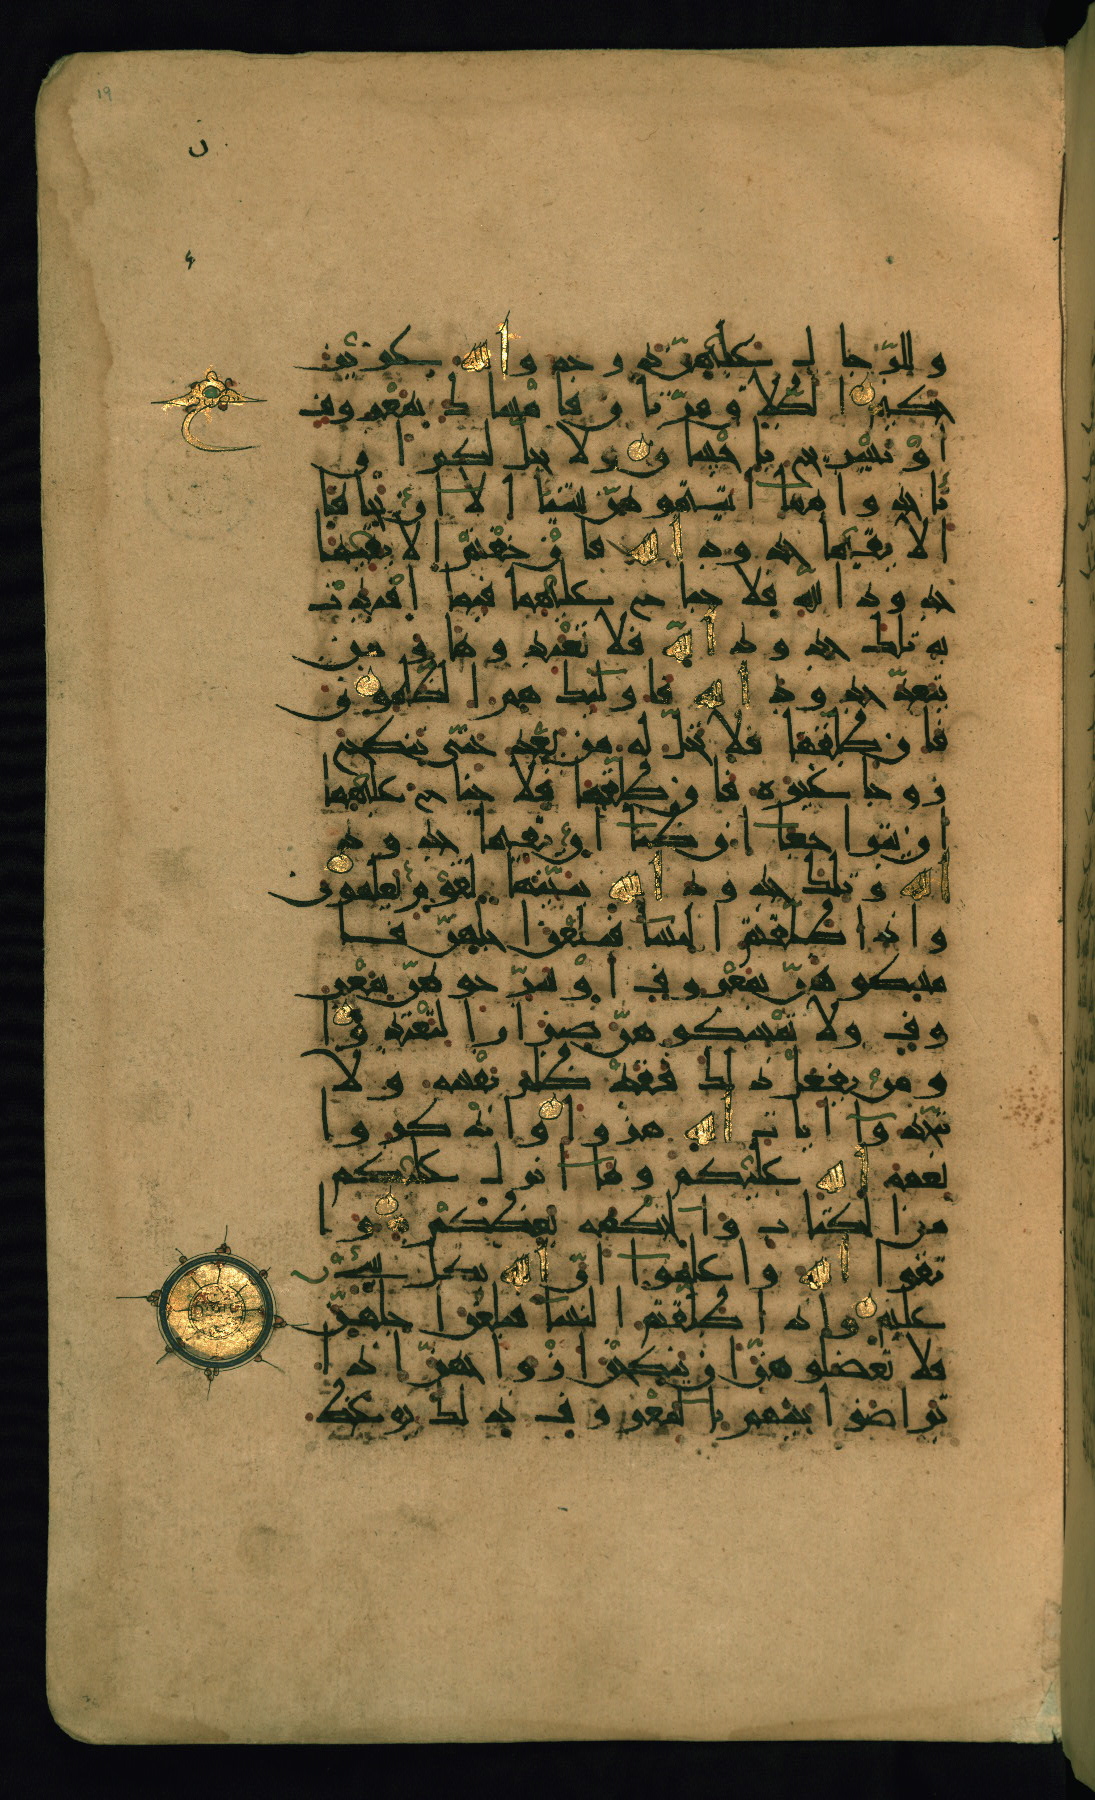 ١٩
وللرجال عليهن درجه والله عزيز
حكيم الطلاق مرتان فامساك بمعروف
او تسريح باحسان ولا يحل لكم ان
تاخذوا مما اتيتموهن شيئا الا ان يخافا
الا يقيما حدود الله فان خفتم الا يقيما
حدود الله فلا جناح عليهما فيما افتدت
به تلك حدود الله فلا تعتدوها ومن
يتعد حدود الله فاولئك هم الظلمون
فان طلقها فلا تحل له من بعد حتى تنكح
زوجا غيره فان طلقها فلا جناح عليهما
ان يتراجعا ان ظنا ان يقيما حدود
الله وتلك حدود الله يبينها لقوم يعلمون
واذا طلقتم النسا فبلغن اجلهن فا
مسكوهن بمعروف او سرحوهن بمعر
وف ولا تمسكوهن ضرارا لتعتدوا
ومن يفعل ذلك فقد ظلم نفسه ولا
تتخذوا ايات الله هزوا واذكروا
نعمه الله عليكم وما انزل عليكم
من الكتاب والحكمه يعظكم به وا
تقوا الله واعلموا ان الله بكل شي
عليم واذا طلقتم النسا فبلغن اجلهن
فلا تعضلوهن ان ينكحن ازواجهن اذا
تراضوا بينهم بالمعروف ذلك يوعظ